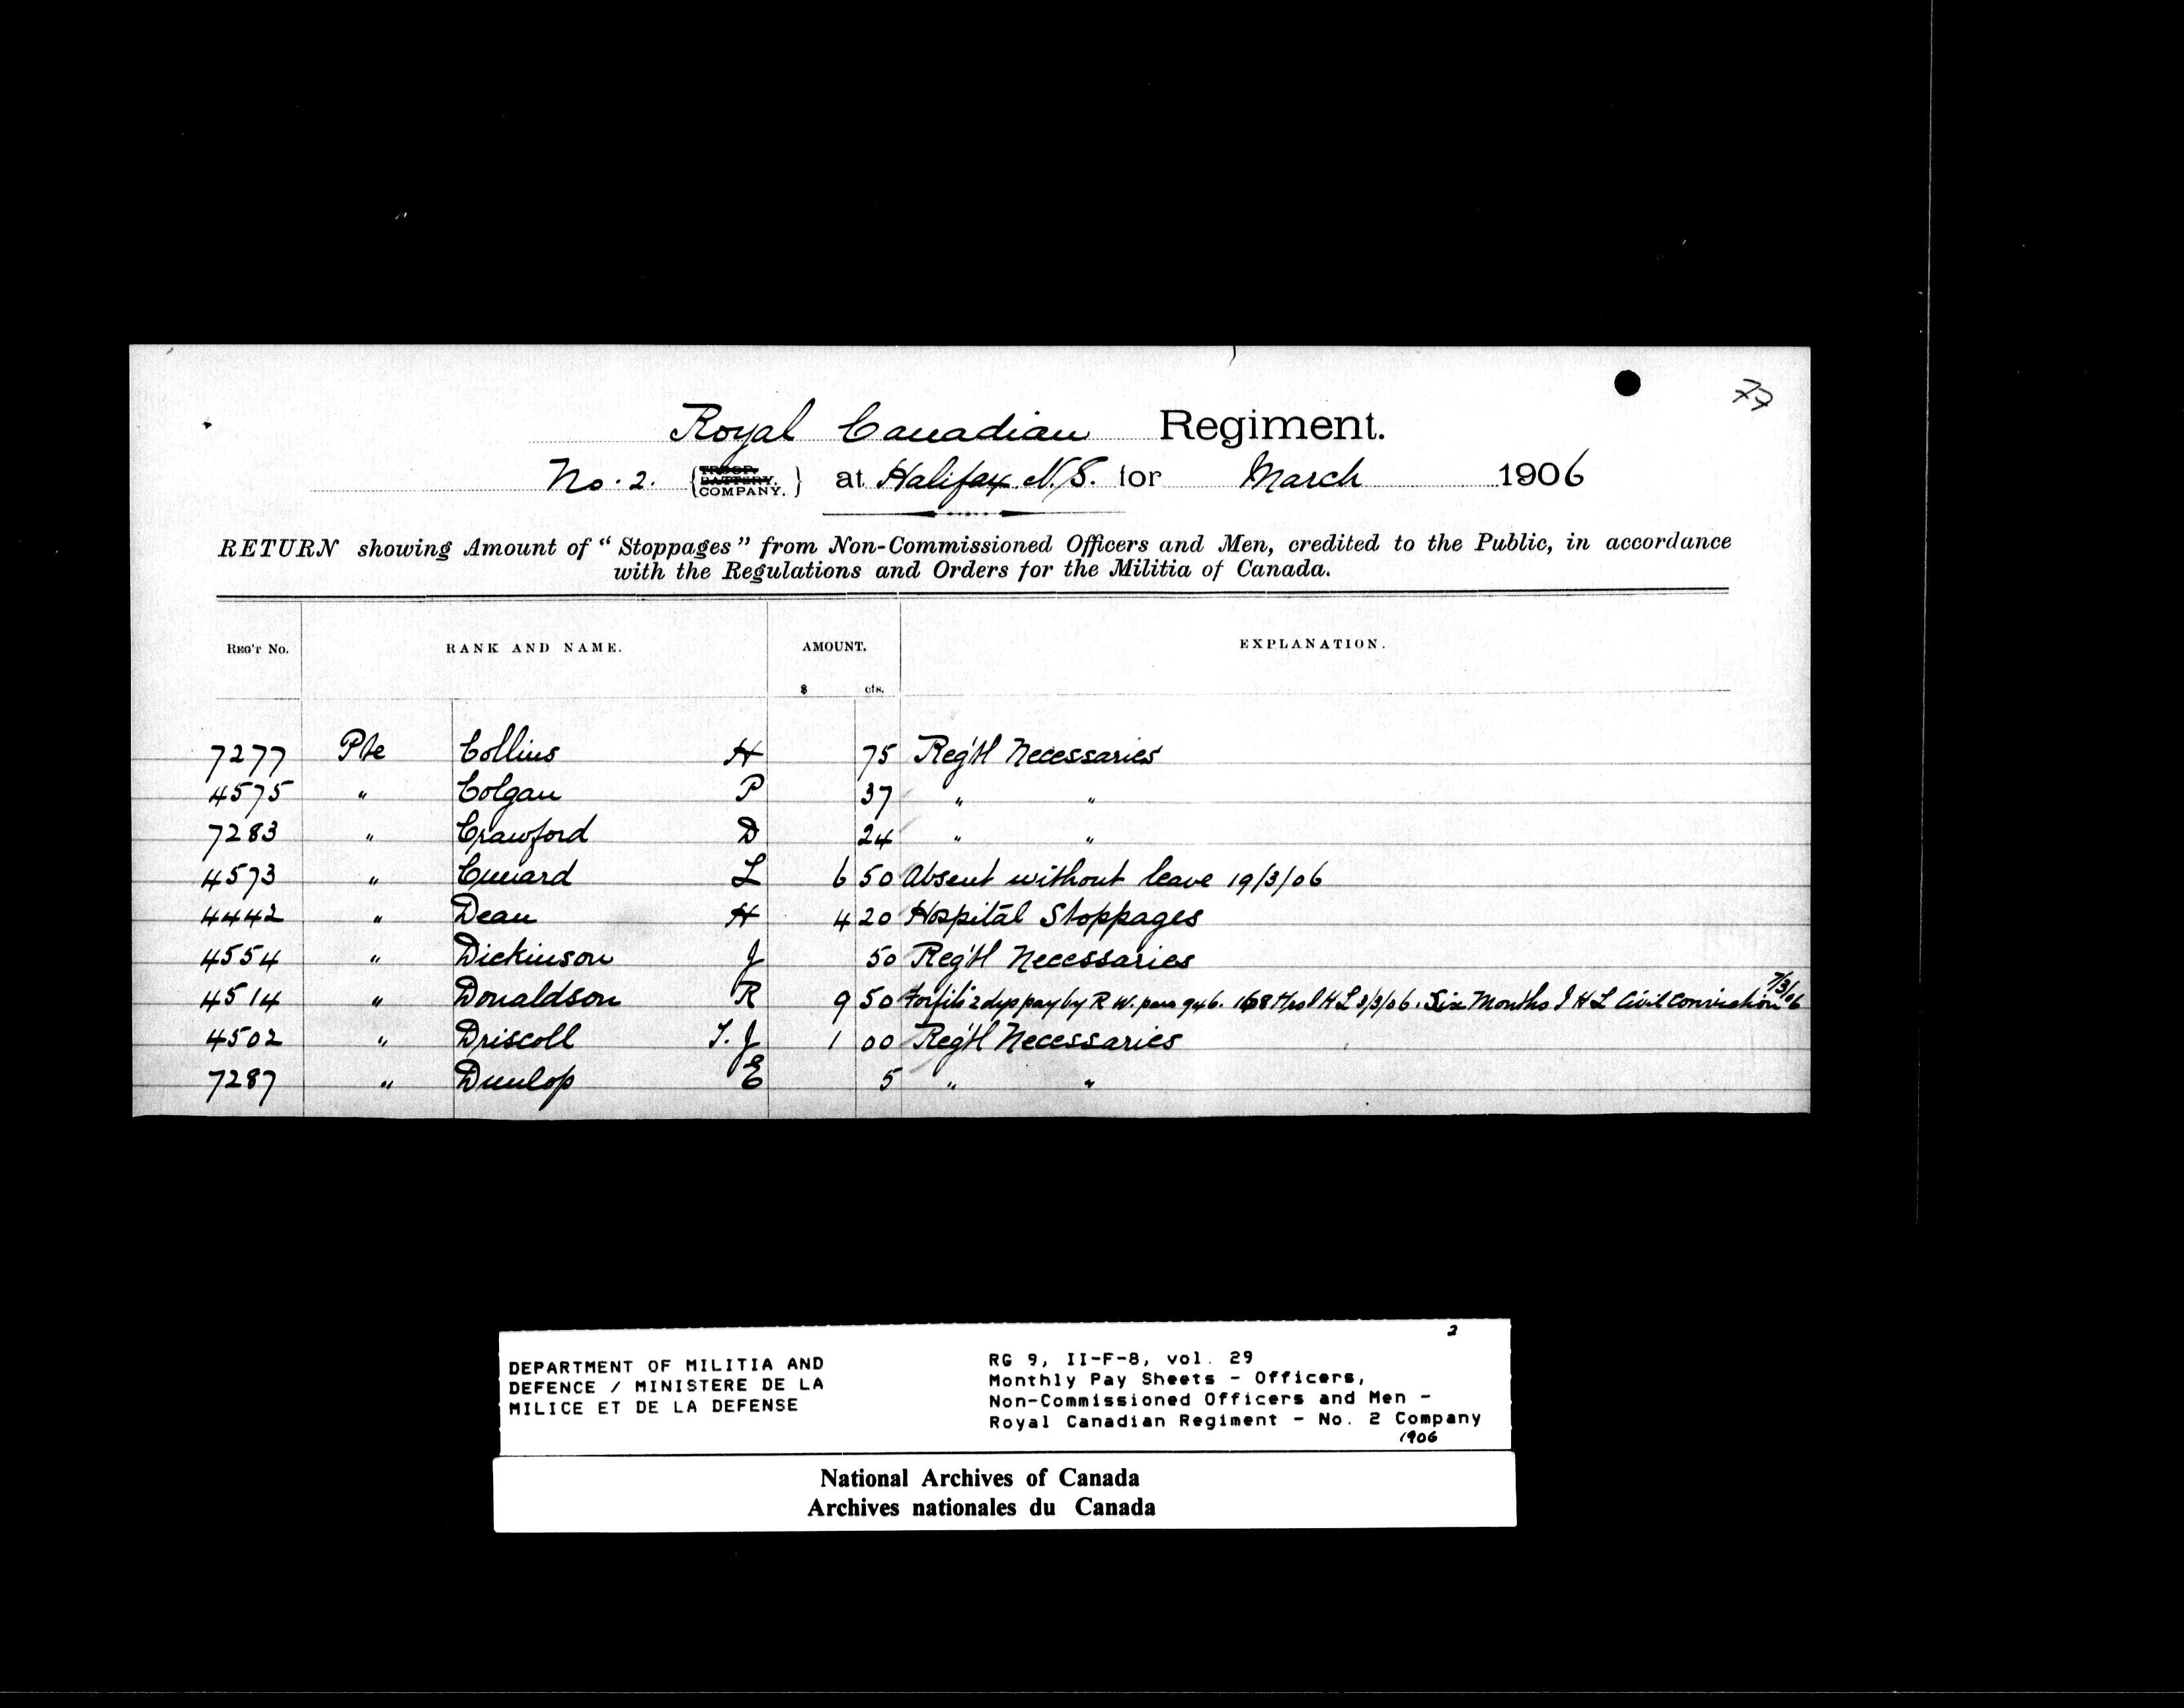 77
Royal Canadian Regiment.
No. 2. { TROOP. BATTERY. COMPANY. } at Halifax N.S. for March 1906
RETURN showing Amount of "Stoppages" from Non-Commissioned Officers and Men, credited to the Public, in accordance
with the Regulations and Orders for the Militia of Canada.
REG'T No. RANK AND NAME. AMOUNT. EXPLANATION.
$ cts.
7277 Pte Collins H 75 Reg'tl Necessaries
4575 " Colgan P 37 " "
7283 " Crawford D 24 " "
4573 " Cunard L 6 50 Absent without leave 19/3/06
4442 " Dean H 4 20 Hospital Stoppages
4554 " Dickinson J 50 Reg'tl Necessaries
4514 " Donaldson R 9 50 Forfits 2 dys pay by R W. para 946. 168 Hrs I H L 2/3/06. Six Months I H L Civil Conviction 7/3/06
4502 " Driscoll T. J 1 00 Reg'tl Necessaries
7287 " Dunlop E 5 " "
2
DEPARTMENT OF MILITIA AND
DEFENCE / MINISTERE DE LA
MILICE ET DE LA DEFENSE
RG 9, II-F-8, vol. 29
Monthly Pay Sheets - Officers,
Non-Commissioned Officers and Men -
Royal Canadian Regiment - No. 2 Company
1906
National Archives of Canada
Archives nationales du Canada